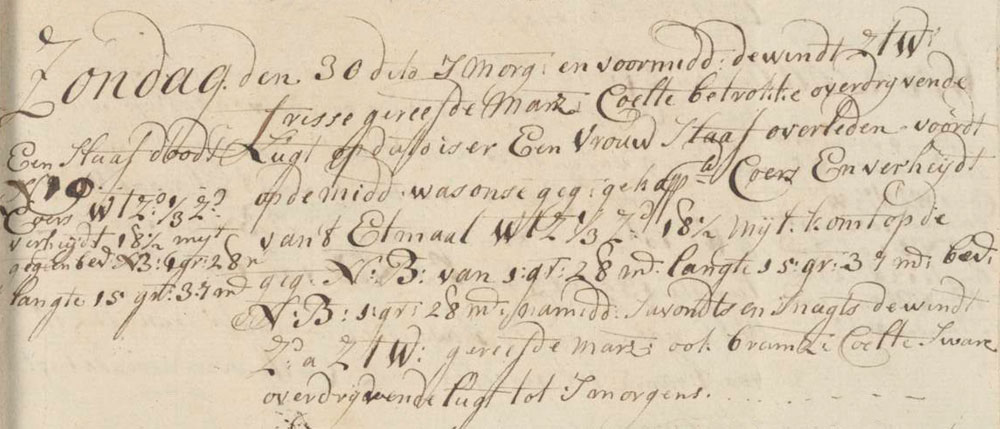 Zondag den 30 dito Smorg: en voormidd: de windt ZtW:
frisse gereefde Marz: Coelte betrokke overdryvende
Lugt op dato is er Een Vrouw Slaaf overleden voordt
op de midd: was onse geg: geha Coers En verheydt
van't Etmaal WtZ 1/3 Z: 18 1/2 myt: komt op de
geg: N: B: van 1: gr: 28 m: langte 15: gr: 37 m: bed:
N: B: 1: gr: 28 m: namidd: Savondts en Snagts de windt
Z: a ZtW: gereefde Marz: ook bramz: Coelte Sware
overdryvende lugt tot Smorgens.
Een Slaaf doodt
N 19.
Coers WtZ: 1/3 Z:
verheydt 18 1/2 myt
gegis en bed: N: B: 1 gr: 28 m
langte 15 gr: 37 m